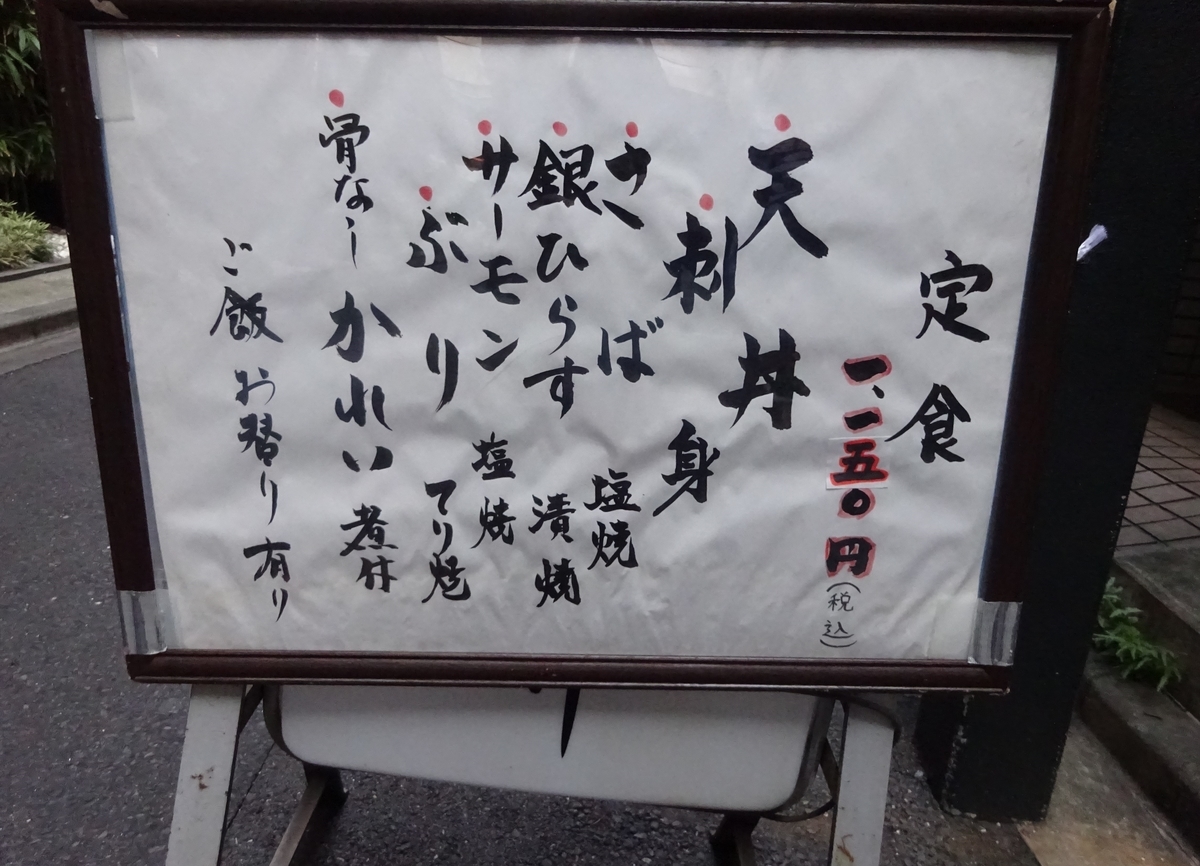 定食
一、一五〇円(税込)
天丼
刺身
さば塩焼
銀ひらす漬焼
サーモン塩焼
ぶりてり焼
骨なしかれい煮付
ご飯お替り有り